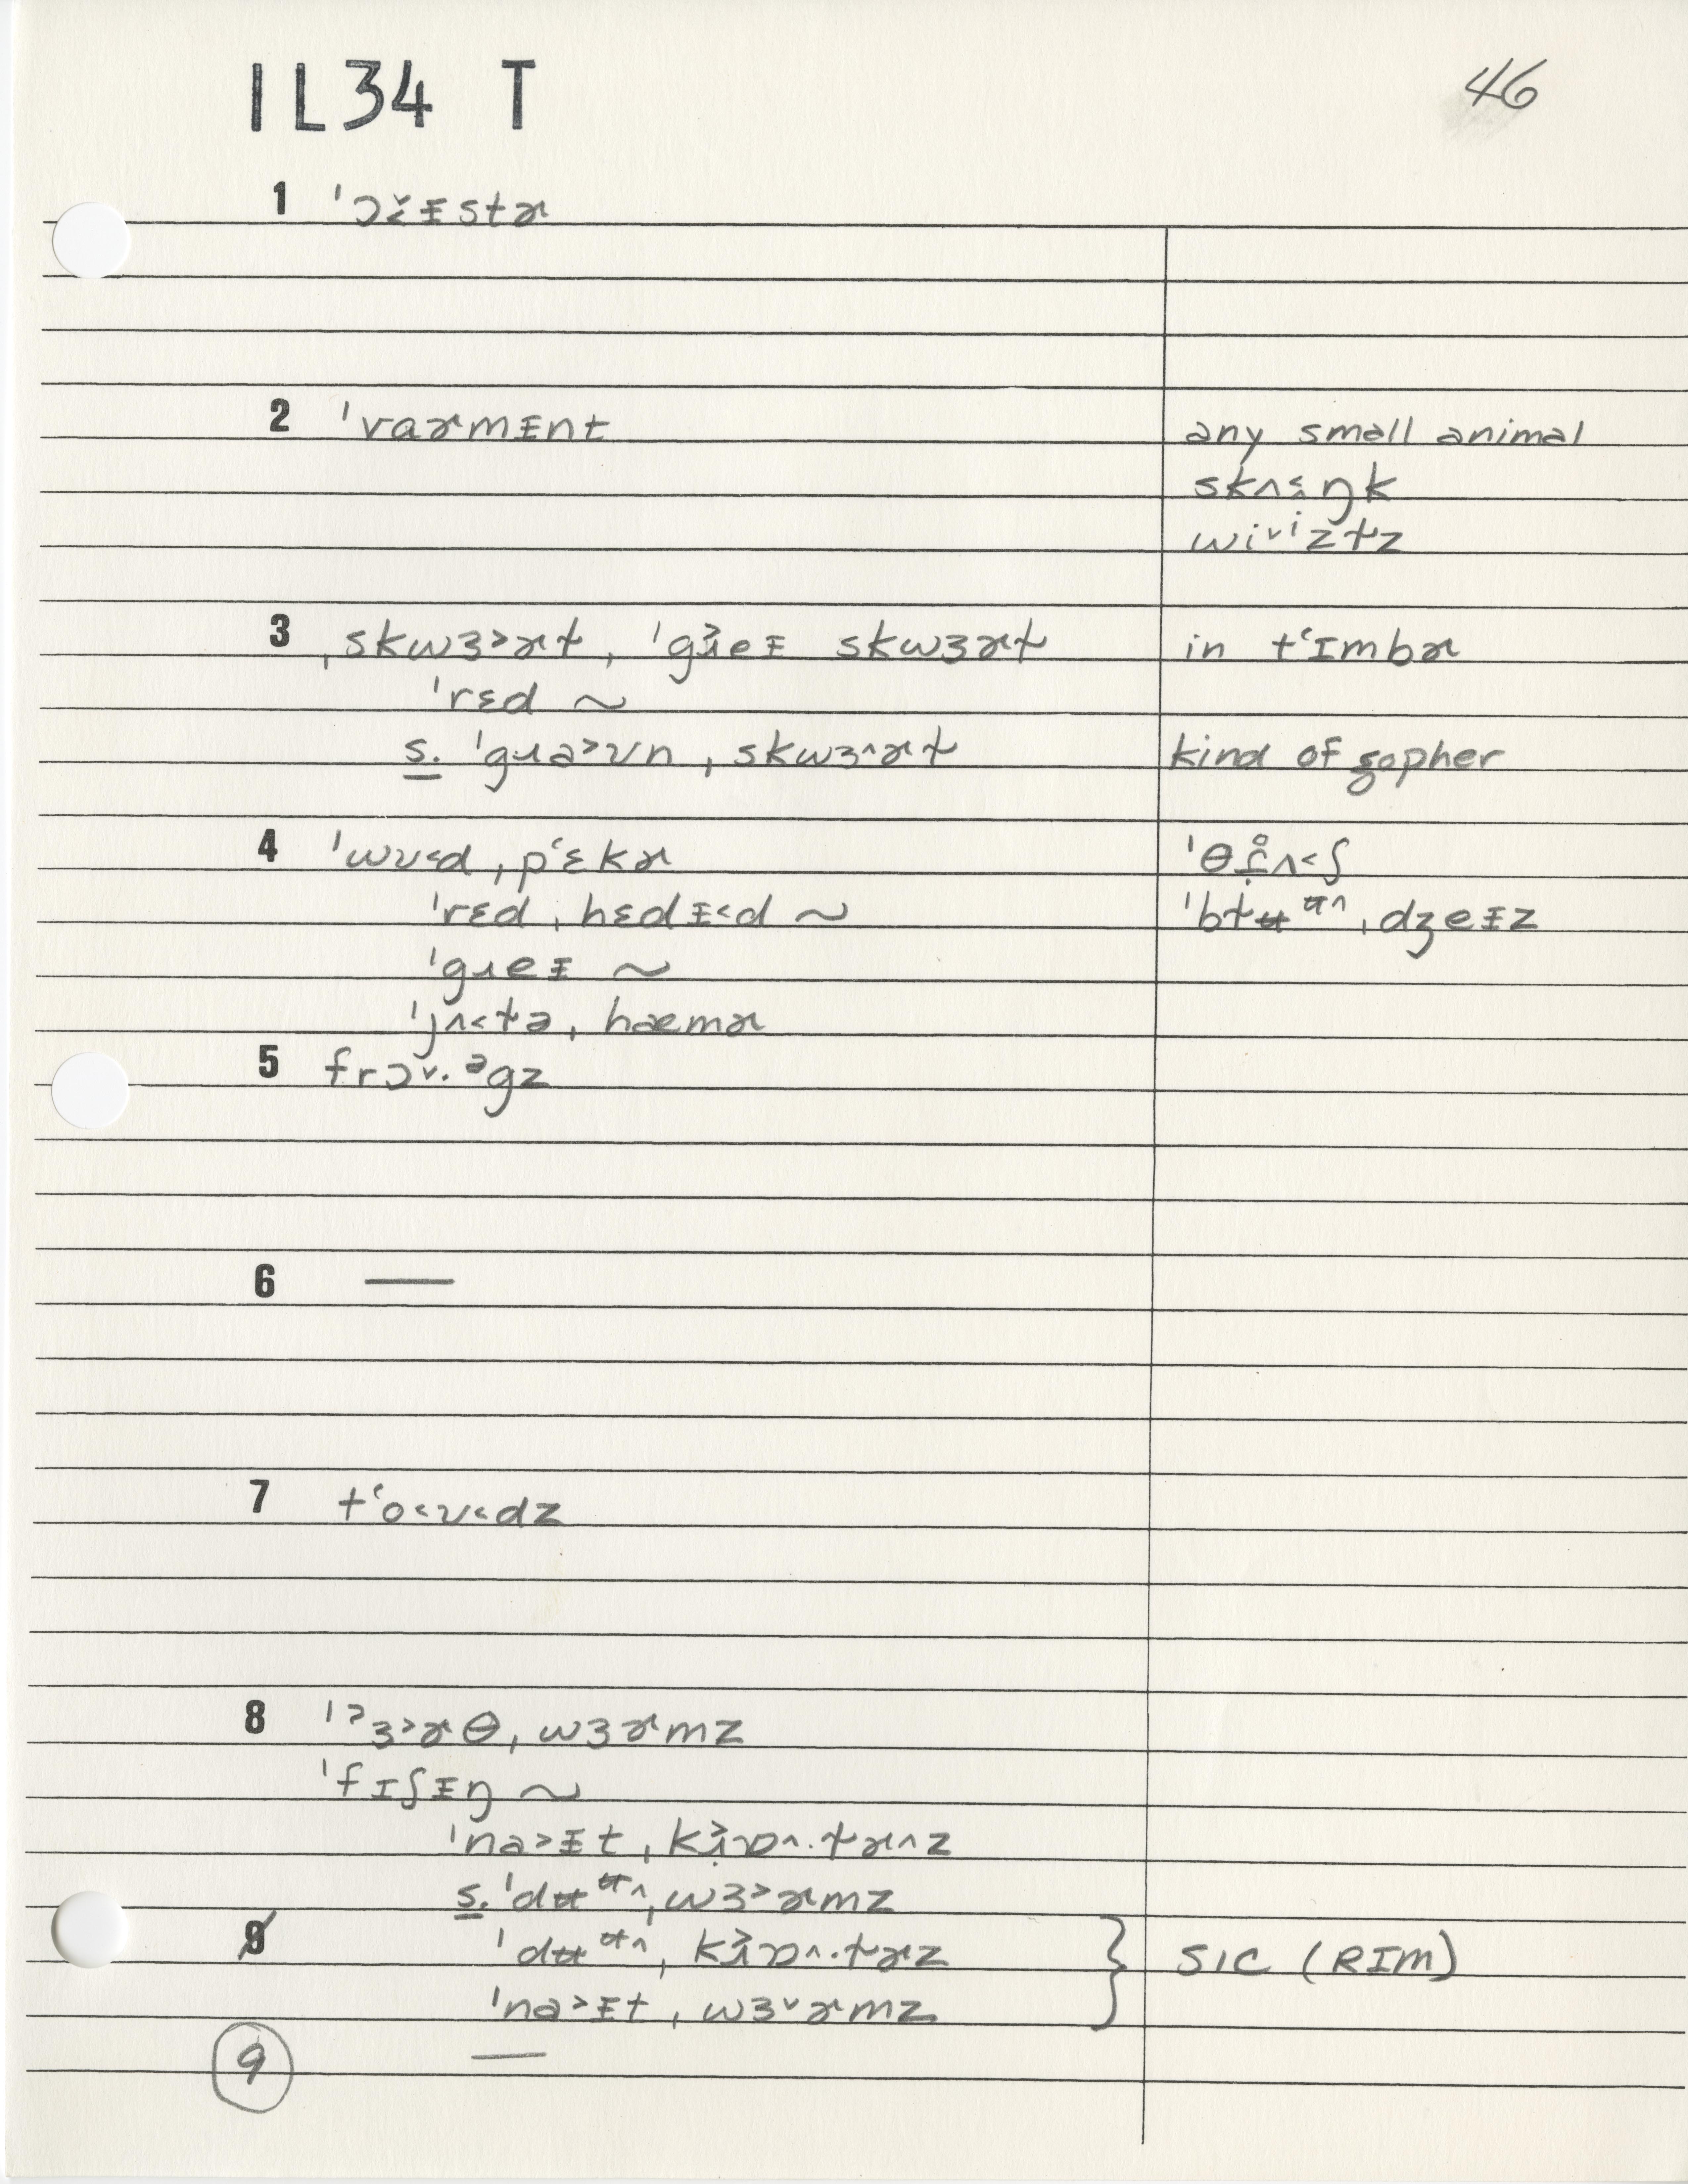 IL34 T
46
1 ˈɔɪ̌ᵻstɚ
2 ˈvaɚmᵻnt any small animal
skʌ˂ᵻŋk
wi˅ⁱzɫz
3 ˌskwɜ˃ɚɫ, ˈgɹ̌eᵻ skwɜɚɫ in tʻɪmbɚ
ˈrɛd ~
s. ˈgɹa˃ʊn ˌskwɜ˄ɚɫ kind of gopher
4 ˈwʊ˂d ˌpʻɛkɚ ˈθɹ̥ʌ˂ʃ
ˈrɛd ˌhɛdᵻ˂d ~ ˈbɫʉ ᵘ̵˄ ˌdʒeᵻz
ˈgɹeᵻ ~
ˈjʌ˂ɫə ˌhæmɚ
5 frɔ˅·ᵊgz
6 —
7 tʻo˂ʊ˂dz
8 ˈˀɜ˃ɚθ ˌwɜɚmz
ˈfɪʃᵻŋ ~
ˈna˃ᵻt ˌkɹ̥ɒ˄·ɫɚ˄z
s. ˈdʉᵘ̵˄ ˌwɜ˃ɚmz
9 ˈdʉᵘ̵˄ ˌkɹ̥ɒ˄·ɫɚz } SIC (RIM)
ˈna˃ᵻt ˌwɜ˅ɚmz
9 —